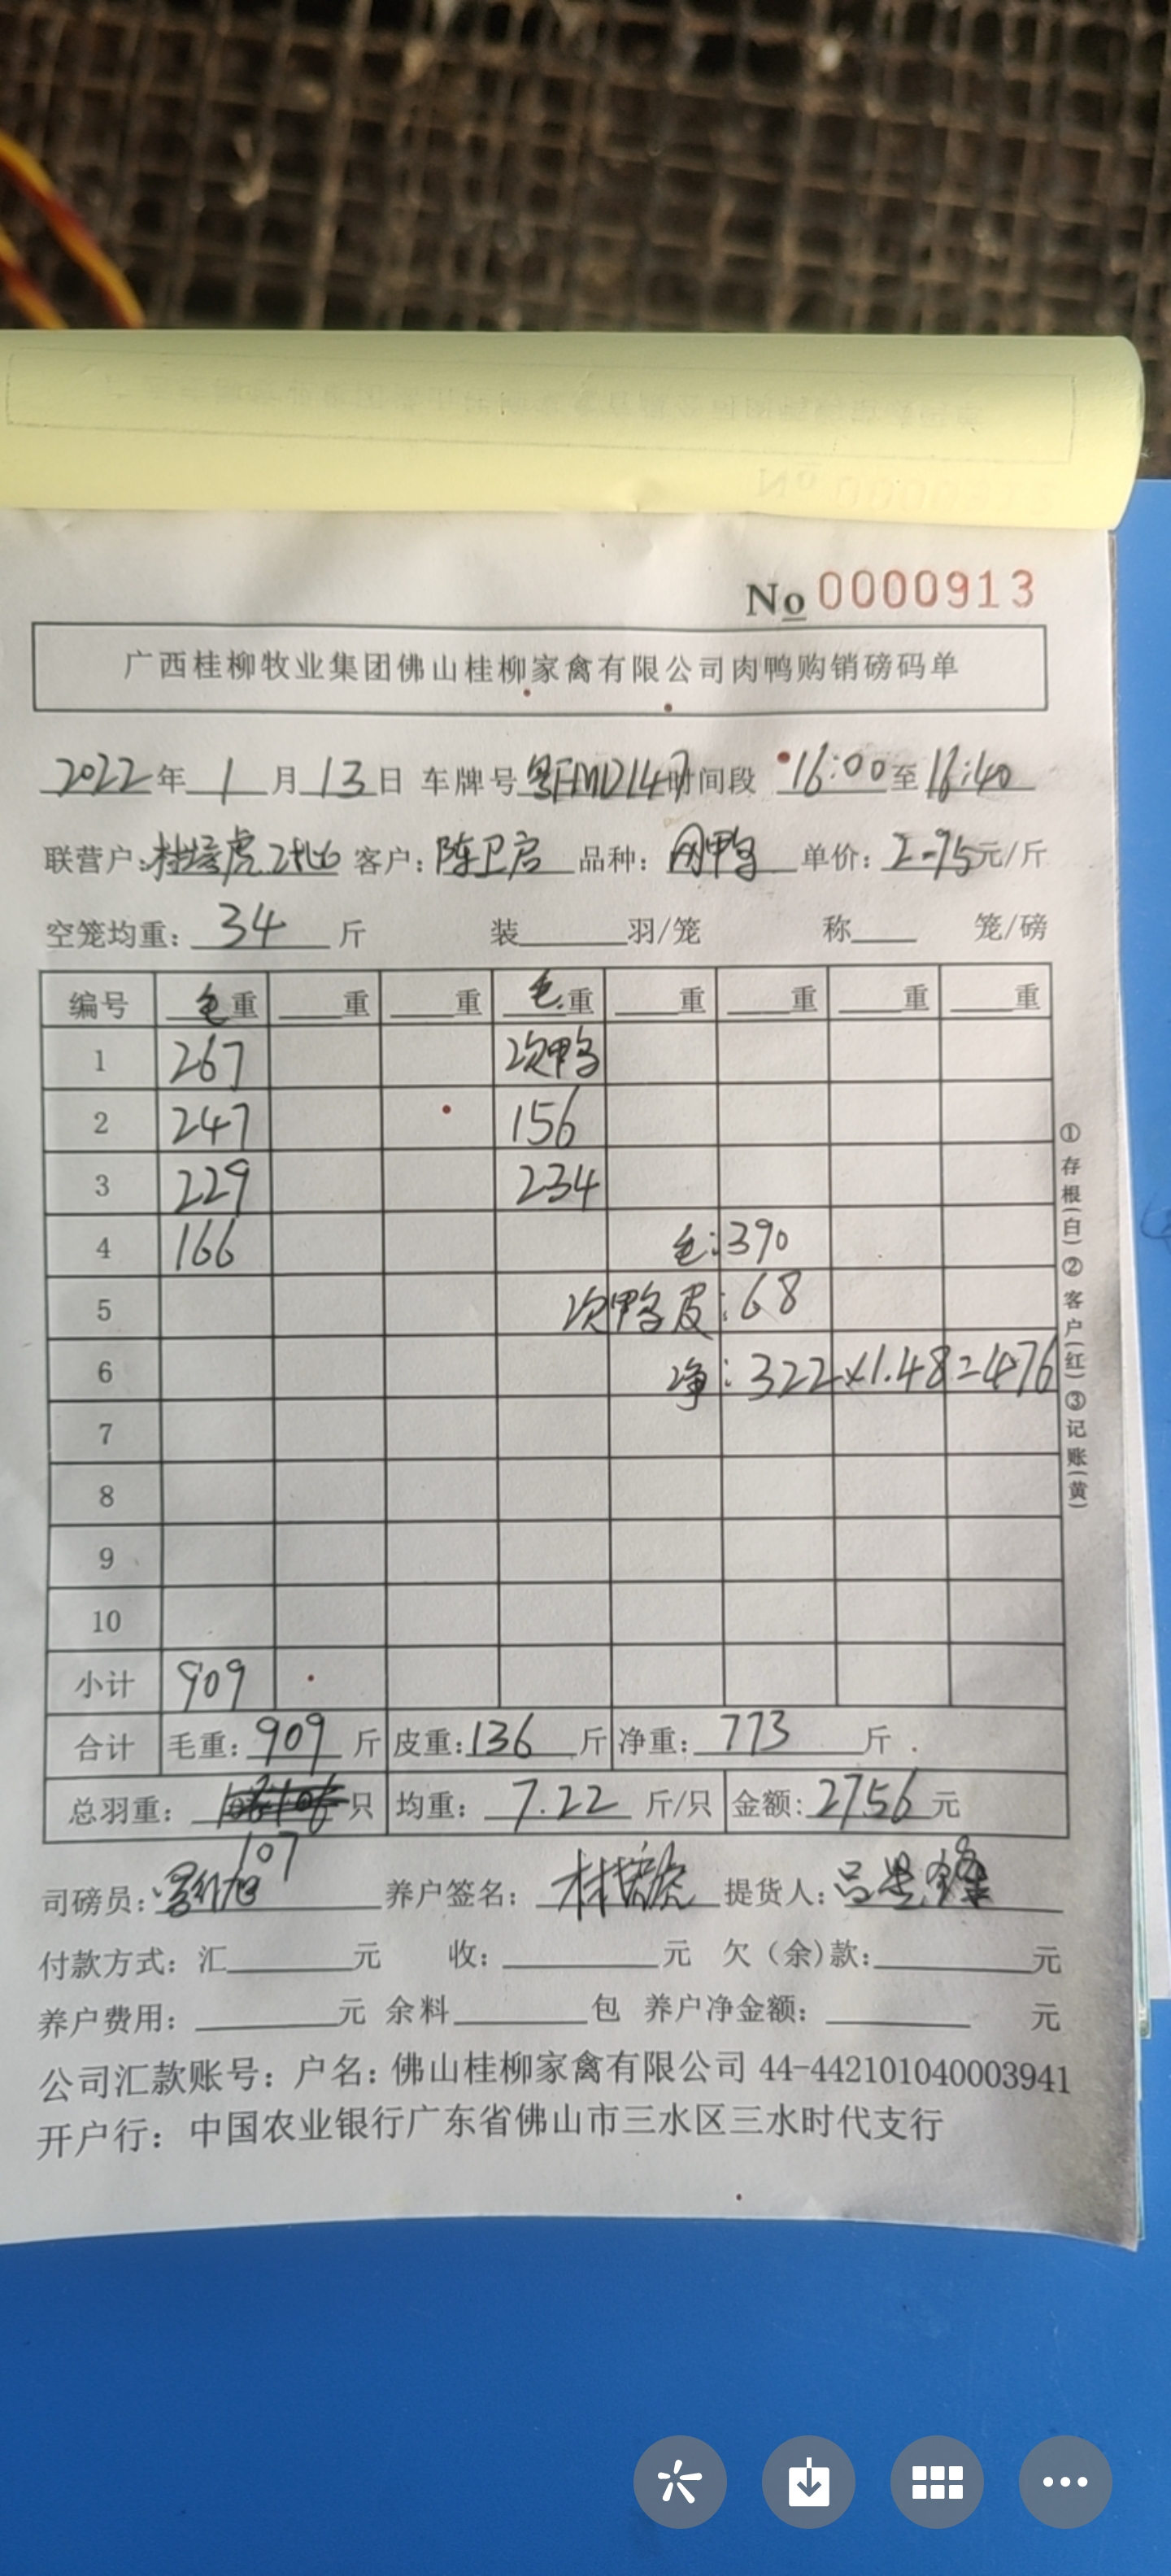 No 0000913
广西桂柳牧业集团佛山桂柳家禽有限公司肉鸭购销磅码单
2022年 1 月 13 日 车牌号 粤FMD147 时间段 16:00 至 16:40
联营户: 客户: 陈卫启 品种: 肉鸭 单价: 2.95 元/斤
空笼均重: 34 斤 装 羽/笼 称 笼/磅
编号 毛重 重 重 毛重 重 重 重 重
1 267 次鸭
2 247 156
3 229 234
4 166 毛:390
5 次鸭皮:68
6 净:322×1.48=476
7
8
9
10
小计 909
合计 毛重: 909 斤 皮重: 136 斤 净重: 773 斤
总羽重: 只 均重: 7.22 斤/只 金额: 2756 元
107
司磅员: 养户签名: 提货人:
付款方式: 汇 元 收: 元 欠(余)款: 元
养户费用: 元 余料 包 养户净金额: 元
公司汇款账号: 户名: 佛山桂柳家禽有限公司 44-442101040003941
开户行: 中国农业银行广东省佛山市三水区三水时代支行
①存根(白)②客户(红)③记账(黄)